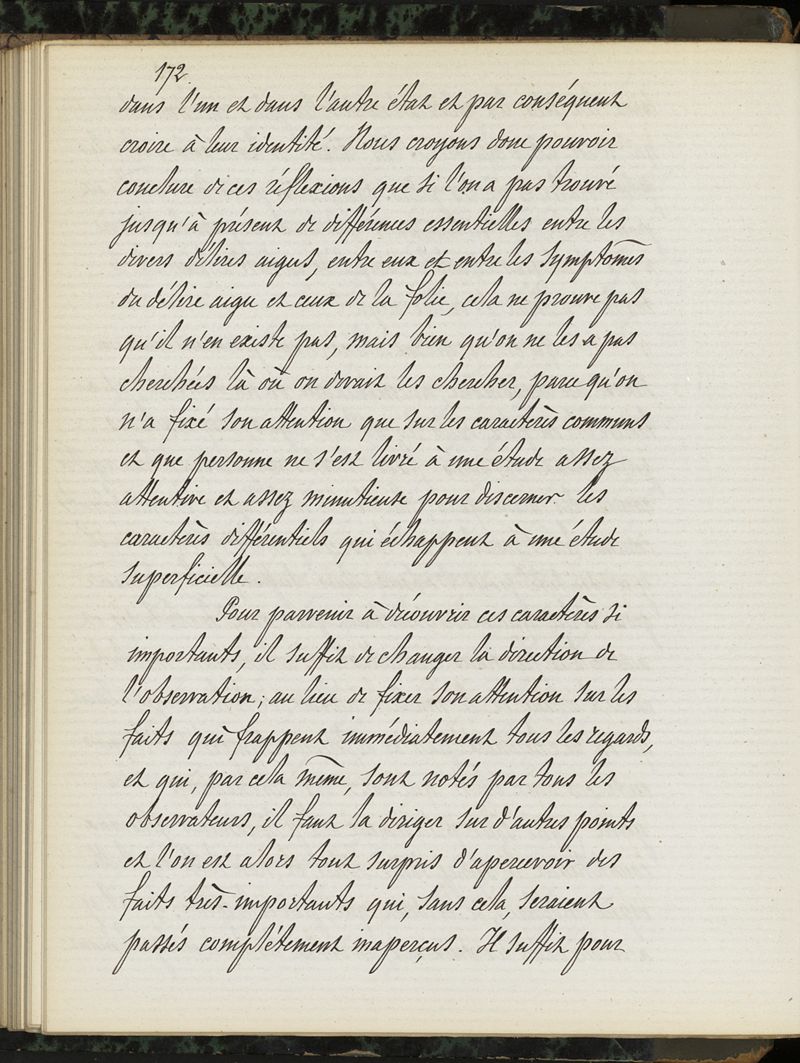 172.
dans l'un et dans l'autre état et par conséquent
croire à leur identité. Nous croyons donc pouvoir
conclure de ces réflexions que si l'on a pas trouvé
jusqu'à présent de différences essentielles entre les
divers délires aigus, entre eux et entre les symptômes
du délire aigu et ceux de la folie, cela ne prouve pas
qu'il n'en existe pas, mais bien qu'on ne les a pas
cherchées là où on devait les chercher, parce qu'on
n'a fixé son attention que sur les caractères communs
et que personne ne s'est livré à une étude assez
attentive et assez minutieuse pour discerner les
caractères différentiels qui échappent à une étude
superficielle.
Pour parvenir à découvrir ces caractères si
importants, il suffit de changer la direction de
l'observation; au lieu de fixer son attention sur les
faits qui frappent immédiatement tous les regards,
et qui, par cela même, sont notés par tous les
observateurs, il faut la diriger sur d'autres points
et l'on est alors tout surpris d'apercevoir des
faits très-importants qui, sans cela, seraient
passés complètement inaperçus. Il suffit pour